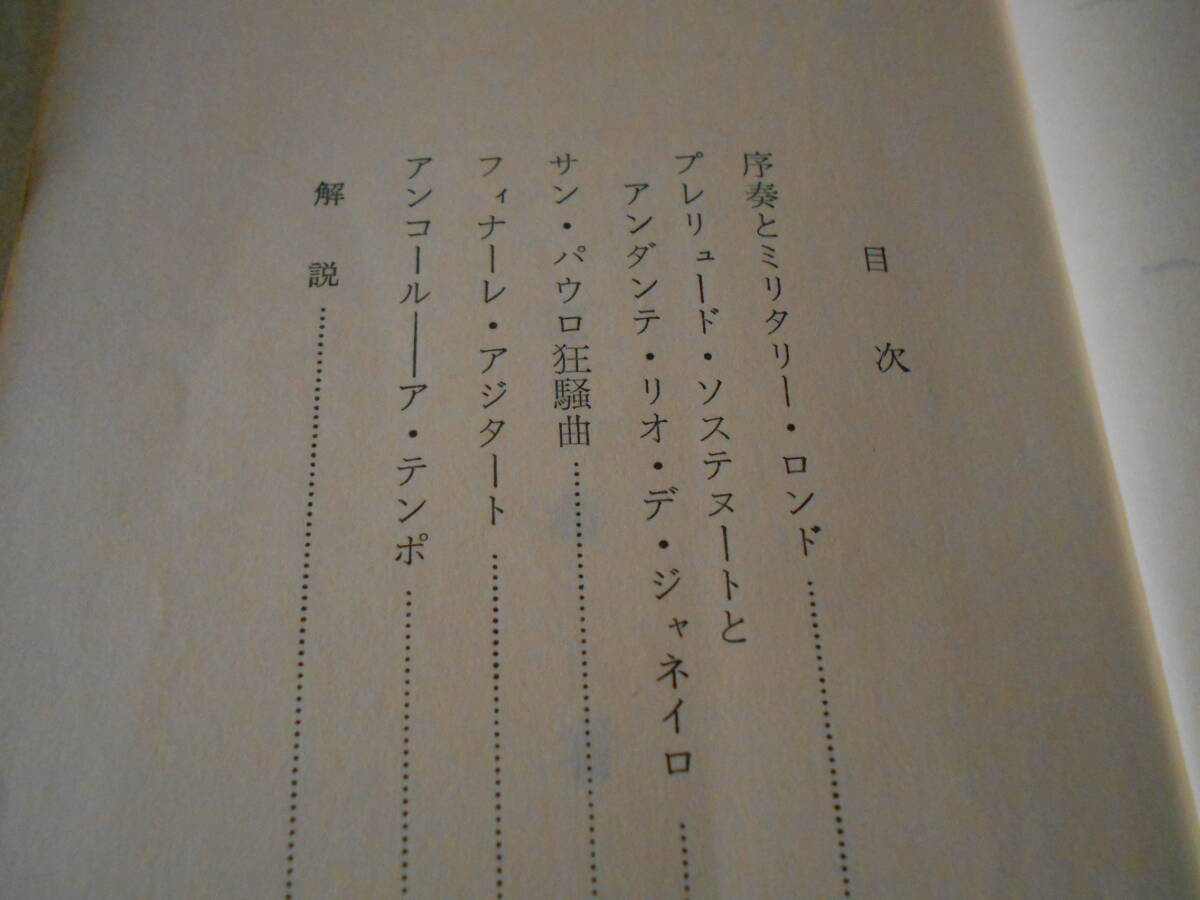 目次
序奏とミリタリー・ロンド…………
プレリュード・ソステヌートと
アンダンテ・リオ・デ・ジャネイロ…………
サン・パウロ狂騒曲…………
フィナーレ・アジタート…………
アンコール——ア・テンポ…………
解説…………